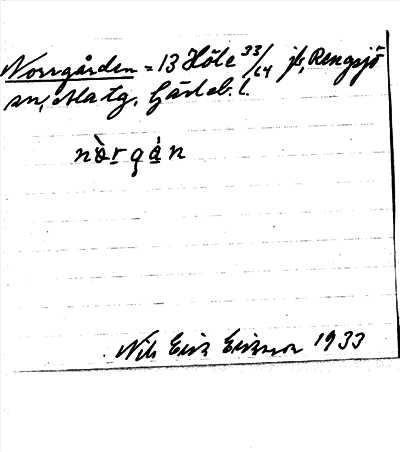 Norrgården = 13 Höle 33/64 jt, Rengsjö
sn, Matg. Gävleb. l.
nò̱rgå̱n
Nils Eric Ericsson 1933